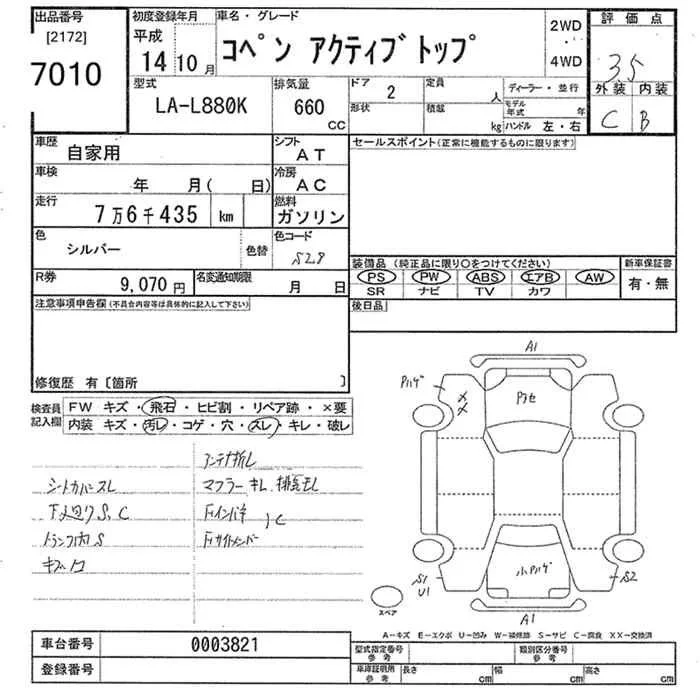 出品番号
[2172]
7010
初度登録年月
平成
14年10月
車名・グレード
コペン アクティブトップ
2WD
・
4WD
評価点
3.5
外装 内装
C B
型式
LA-L880K
排気量
660
CC
ドア
2
形状
定員
人
積載
kg
ディーラー・並行
モデル年式 年
ハンドル 左・右
車歴
自家用
シフト
AT
車検
年 月( 日)
冷房
AC
走行
7万6千435 km
燃料
ガソリン
色
シルバー
色替
色コード
S28
R券
9,070円
名変通知期限
月 日
セールスポイント(正常に機能するものに限ります)
装備品 (純正品に限り○をつけてください)
PS PW ABS エアB AW
SR ナビ TV カワ
新車保証書
有・無
後日品
注意事項申告欄(不具合内容等は具体的に記入して下さい)
修復歴 有〔箇所 〕
検査員記入欄
FW キズ・飛石・ヒビ割・リペア跡・×要
内装 キズ・汚レ・コゲ・穴・スレ・キレ・破レ
アンテナ折レ
シートカバースレ
マフラーキレ、排気モレ
下廻りS、C
トランク内S
Frサイドメンバー
A1
Pハゲ
X
X
Pアセ
小Pハゲ
S1
U1
S2
A1
スペア
A-キズ E-エクボ U-凹み W-補修跡 S-サビ C-腐食 XX-交換済
車台番号
0003821
登録番号
型式指定番号
参考
類別区分番号
参考
車庫証明用
参考
長さ cm
幅 cm
高さ cm